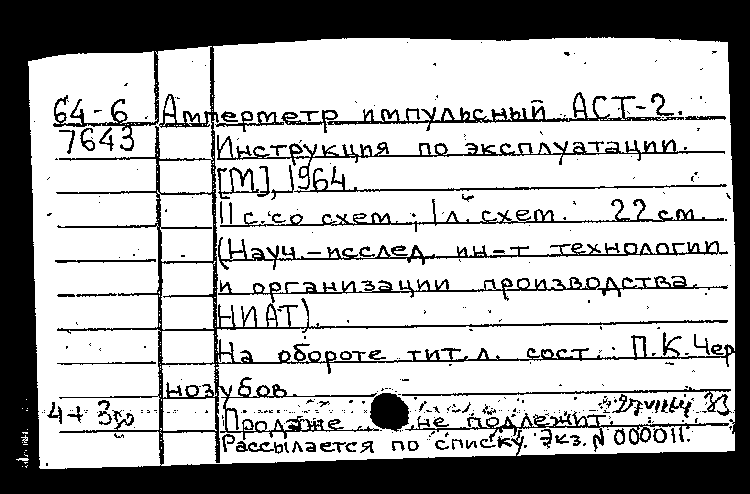 64-6 Амперметр импульсный АСТ-2.
7643 Инструкция по эксплуатации.
[М], 1964.
11 с. со схем.; 1 л. схем. 22 см.
(Науч.-исслед. ин-т технологии
и организации производства
НИАТ).
На обороте тит. л. сост.: П.К. Чер
нозубов.
4+3
Продаже не подлежит.
Рассылается по списку. Экз. N 000011.